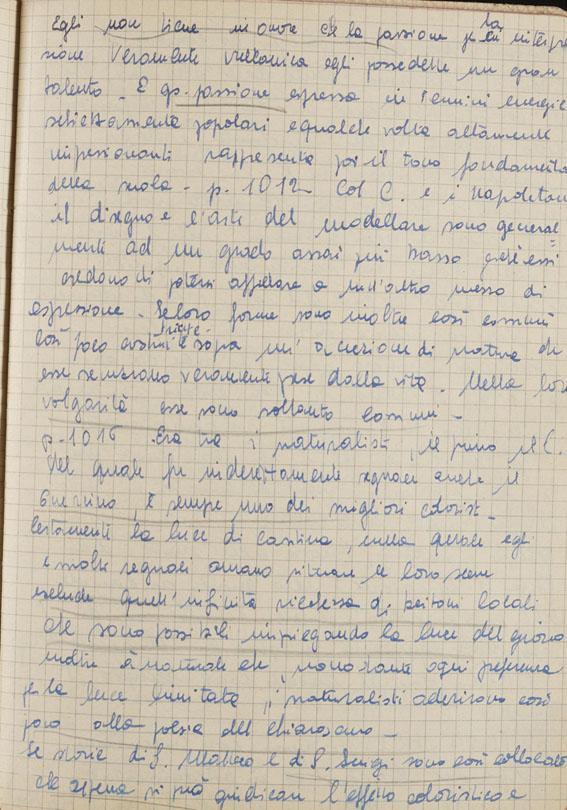 Egli non tiene in onore che la passione per la cui interpre
sione veramente vulcanica egli possedette un gran
talento. E qs. passione espressa in termini energici
schiettamente popolari e qualche volta altamente
impressionanti rappresenta poi il tono fondamenta
della scuola - p. 1012 Col C. e i napoletani
il disegno e l'arte del modellare sono general=
mente ad un grado assai più basso perché essi
credono di potersi affidare a un'altro mezzo di
espressione. Le loro forme sono inoltre così comuni
così poco sopra un' di natura che
esse sembrano veramente prese dalla vita. Nella loro
volgarità esse sono soltanto comuni -
p. 1016 Era tra i naturalisti, il primo il C.
del quale fu indirettamente seguace anche il
Guercino, è sempre uno dei migliori coloristi -
Certamente la luce di cantina, nella quale egli
e molti seguaci amano situare le loro scene
esclude quell'infinita ricchezza di toni locali
che sono possibili impiegando la luce del giorno
inoltre è naturale che, nonostante ogni preferenza
per la luce limitata, i naturalisti aderirono così
poco alla poesia del chiaroscuro -
Le storie di S. Matteo e di S. Luigi sono così collocate
che appena si può giudicare l'effetto coloristico e